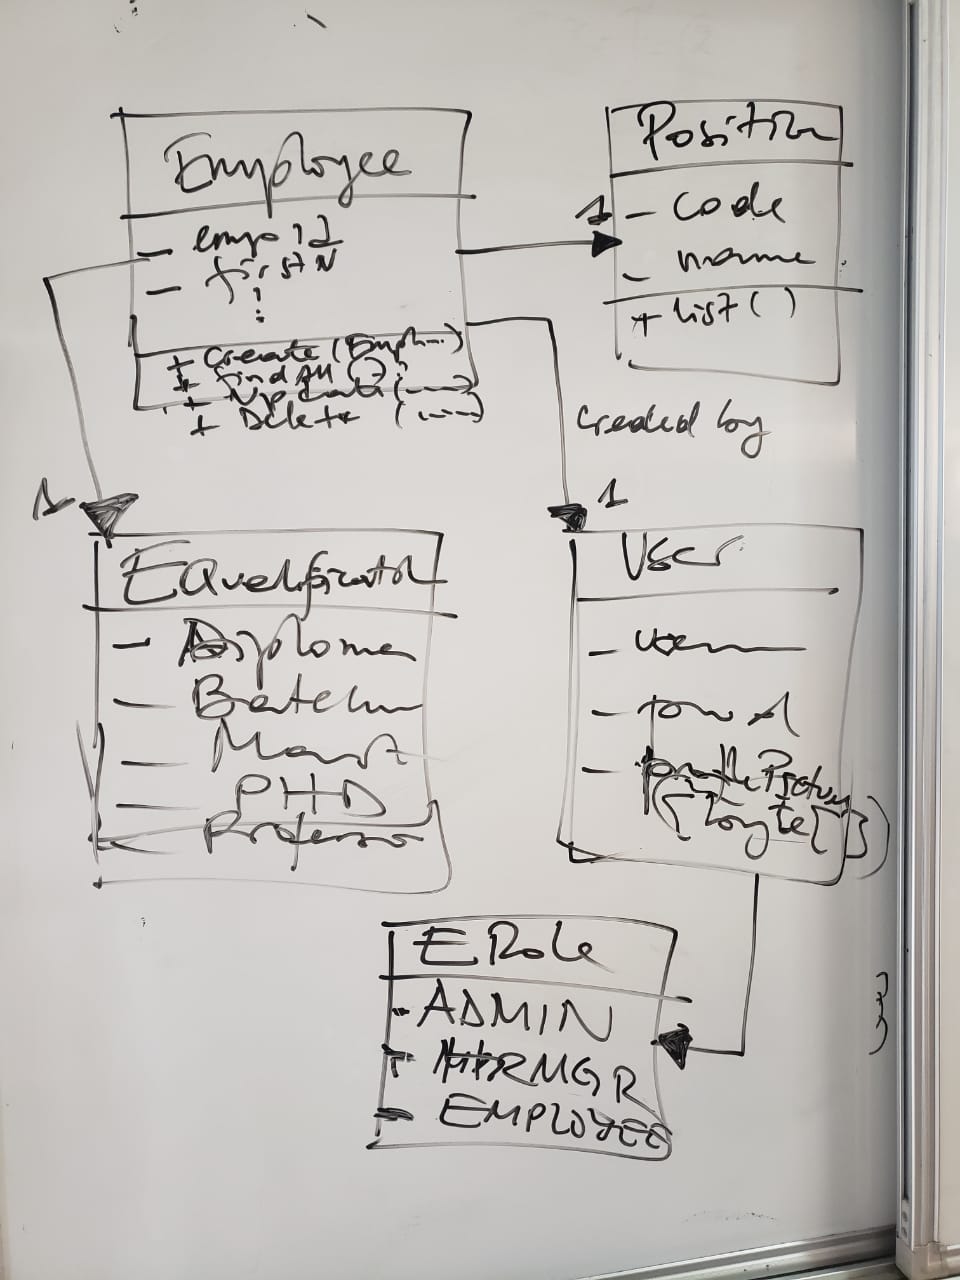 Employee
- emp id
- first N
+ Create (Empl...)
+ find All ( )
+ Update (----)
+ Delete (----)
Position
1
- code
- name
+ list ( )
created by
1
1
EQualification
- Diploma
- Bachelor
- Mast
- PHD
- Professor
User
- usern
- pswd
- profile Picture
(byte[])
ERole
- ADMIN
- HRMGR
- EMPLOYEE